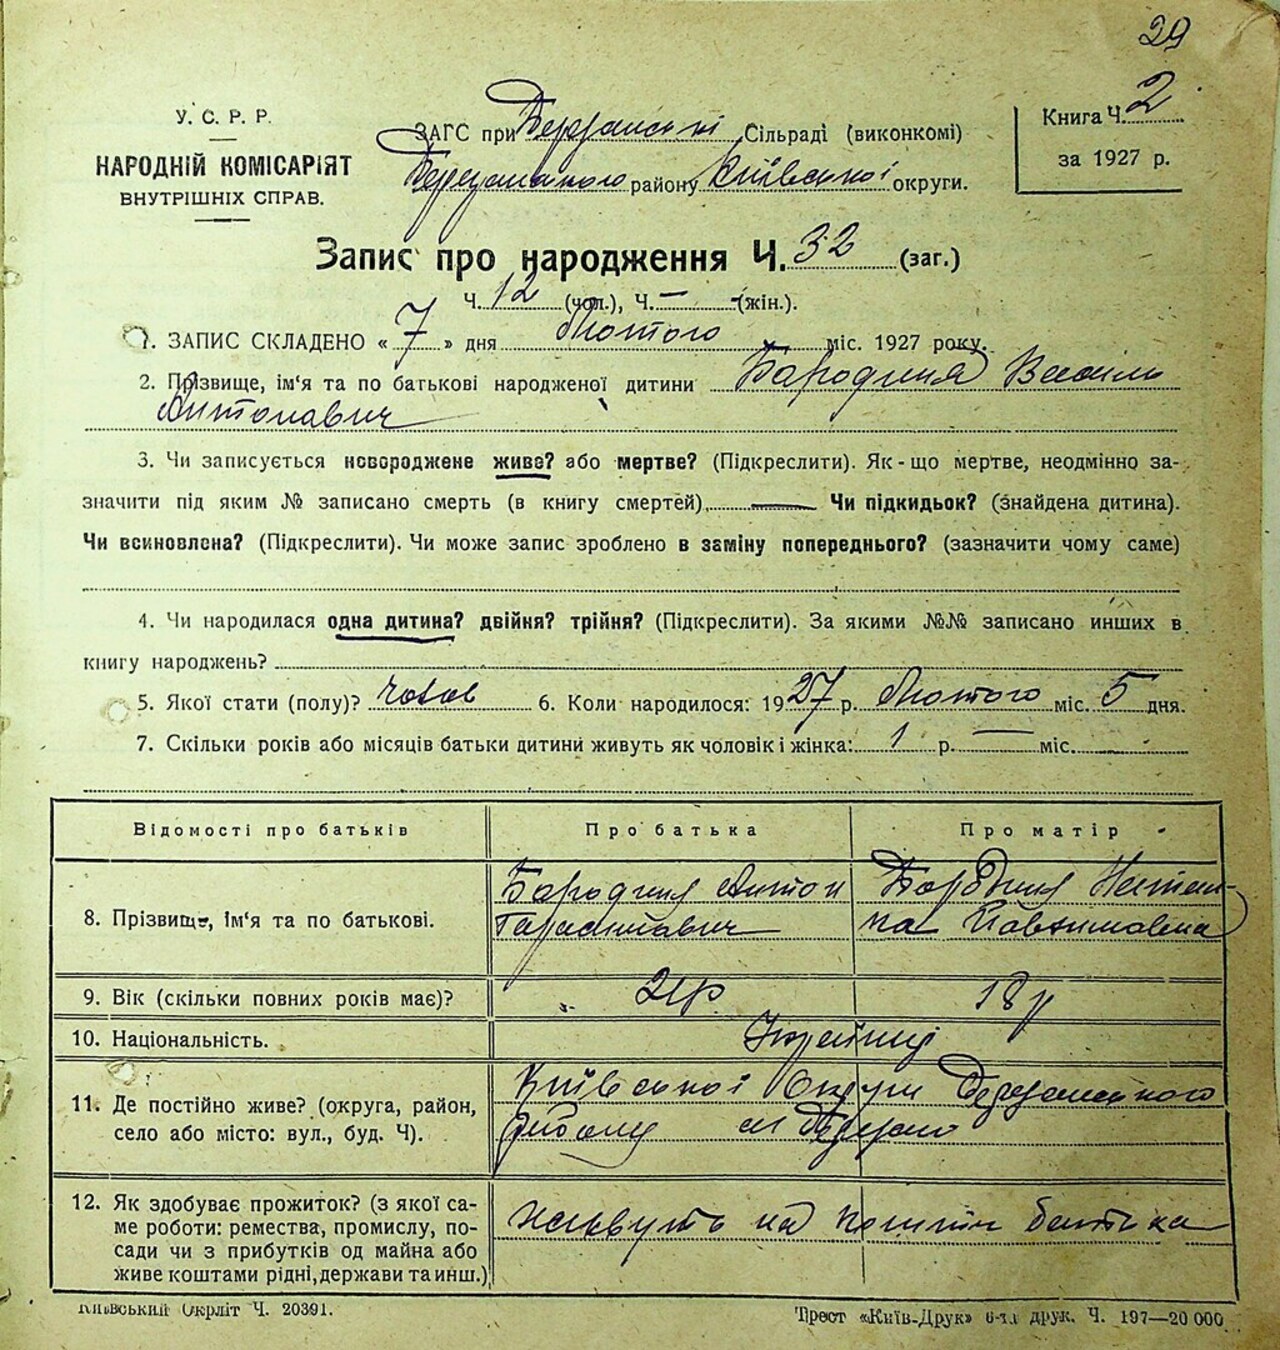 29
У. С. Р. Р.
НАРОДНІЙ КОМІСАРІЯТ
ВНУТРІШНІХ СПРАВ.
ЗАГС при Березанській Сільраді (виконкомі)
Березанського району Київської округи.
Книга Ч. 2
за 1927 р.
Запис про народження Ч. 32 (заг.)
Ч. 12 (чол.), Ч. — (жін.).
1. ЗАПИС СКЛАДЕНО « 7 » дня Лютого міс. 1927 року.
2. Прізвище, ім'я та по батькові народженої дитини Бородиня Василь
Антонавич
3. Чи записується новороджене живе? або мертве? (Підкреслити). Як-що мертве, неодмінно за-
значити під яким № записано смерть (в книгу смертей) — Чи підкидьок? (знайдена дитина).
Чи всиновлена? (Підкреслити). Чи може запис зроблено в заміну попереднього? (зазначити чому саме)
4. Чи народилася одна дитина? двійня? трійня? (Підкреслити). За якими №№ записано инших в
книгу народжень?
5. Якої стати (полу)? чолов 6. Коли народилося: 1927 р. Лютого міс. 5 дня.
7. Скільки років або місяців батьки дитини живуть як чоловік і жінка: 1 р. — міс.
Відомості про батьків
Про батька
Про матір
8. Прізвище, ім'я та по батькові.
Антон
9. Вік (скільки повних років має)?
18 р
10. Національність.
11. Де постійно живе? (округа, район,
село або місто: вул., буд. Ч).
Київської Округи Березанського
району м Березань
12. Як здобуває прожиток? (з якої са-
ме роботи: ремества, промислу, по-
сади чи з прибутків од майна або
живе коштами рідні, держави та инш.)
живуть на кошти батька
Київський Окрліт Ч. 20391.
Трест «Київ-Друк» 6-та друк. Ч. 197—20 000